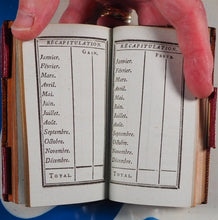 RÉCAPITULATION.
GAIN.
Janvier.
Février.
Mars.
Avril.
Mai.
Juin.
Juillet.
Août.
Septembre.
Octobre.
Novembre.
Décembre.
TOTAL
RÉCAPITULATION.
PERTE.
Janvier.
Février.
Mars.
Avril.
Mai.
Juin.
Juillet.
Août.
Septembre.
Octobre.
Novembre.
Décembre.
TOTAL